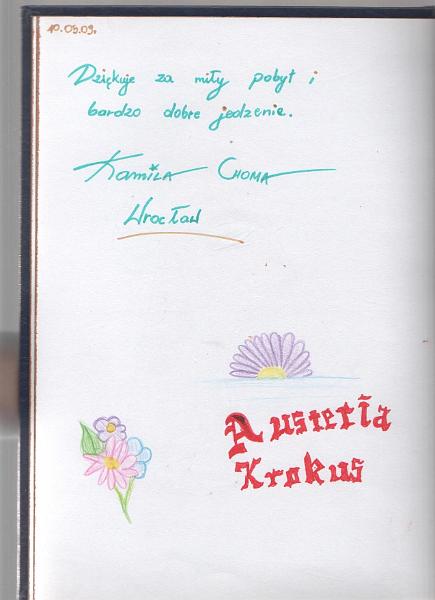 10.05.09.
Dziękuje za miły pobyt i
bardzo dobre jedzenie.
Kamila Choma
Wrocław
Austeria
Krokus